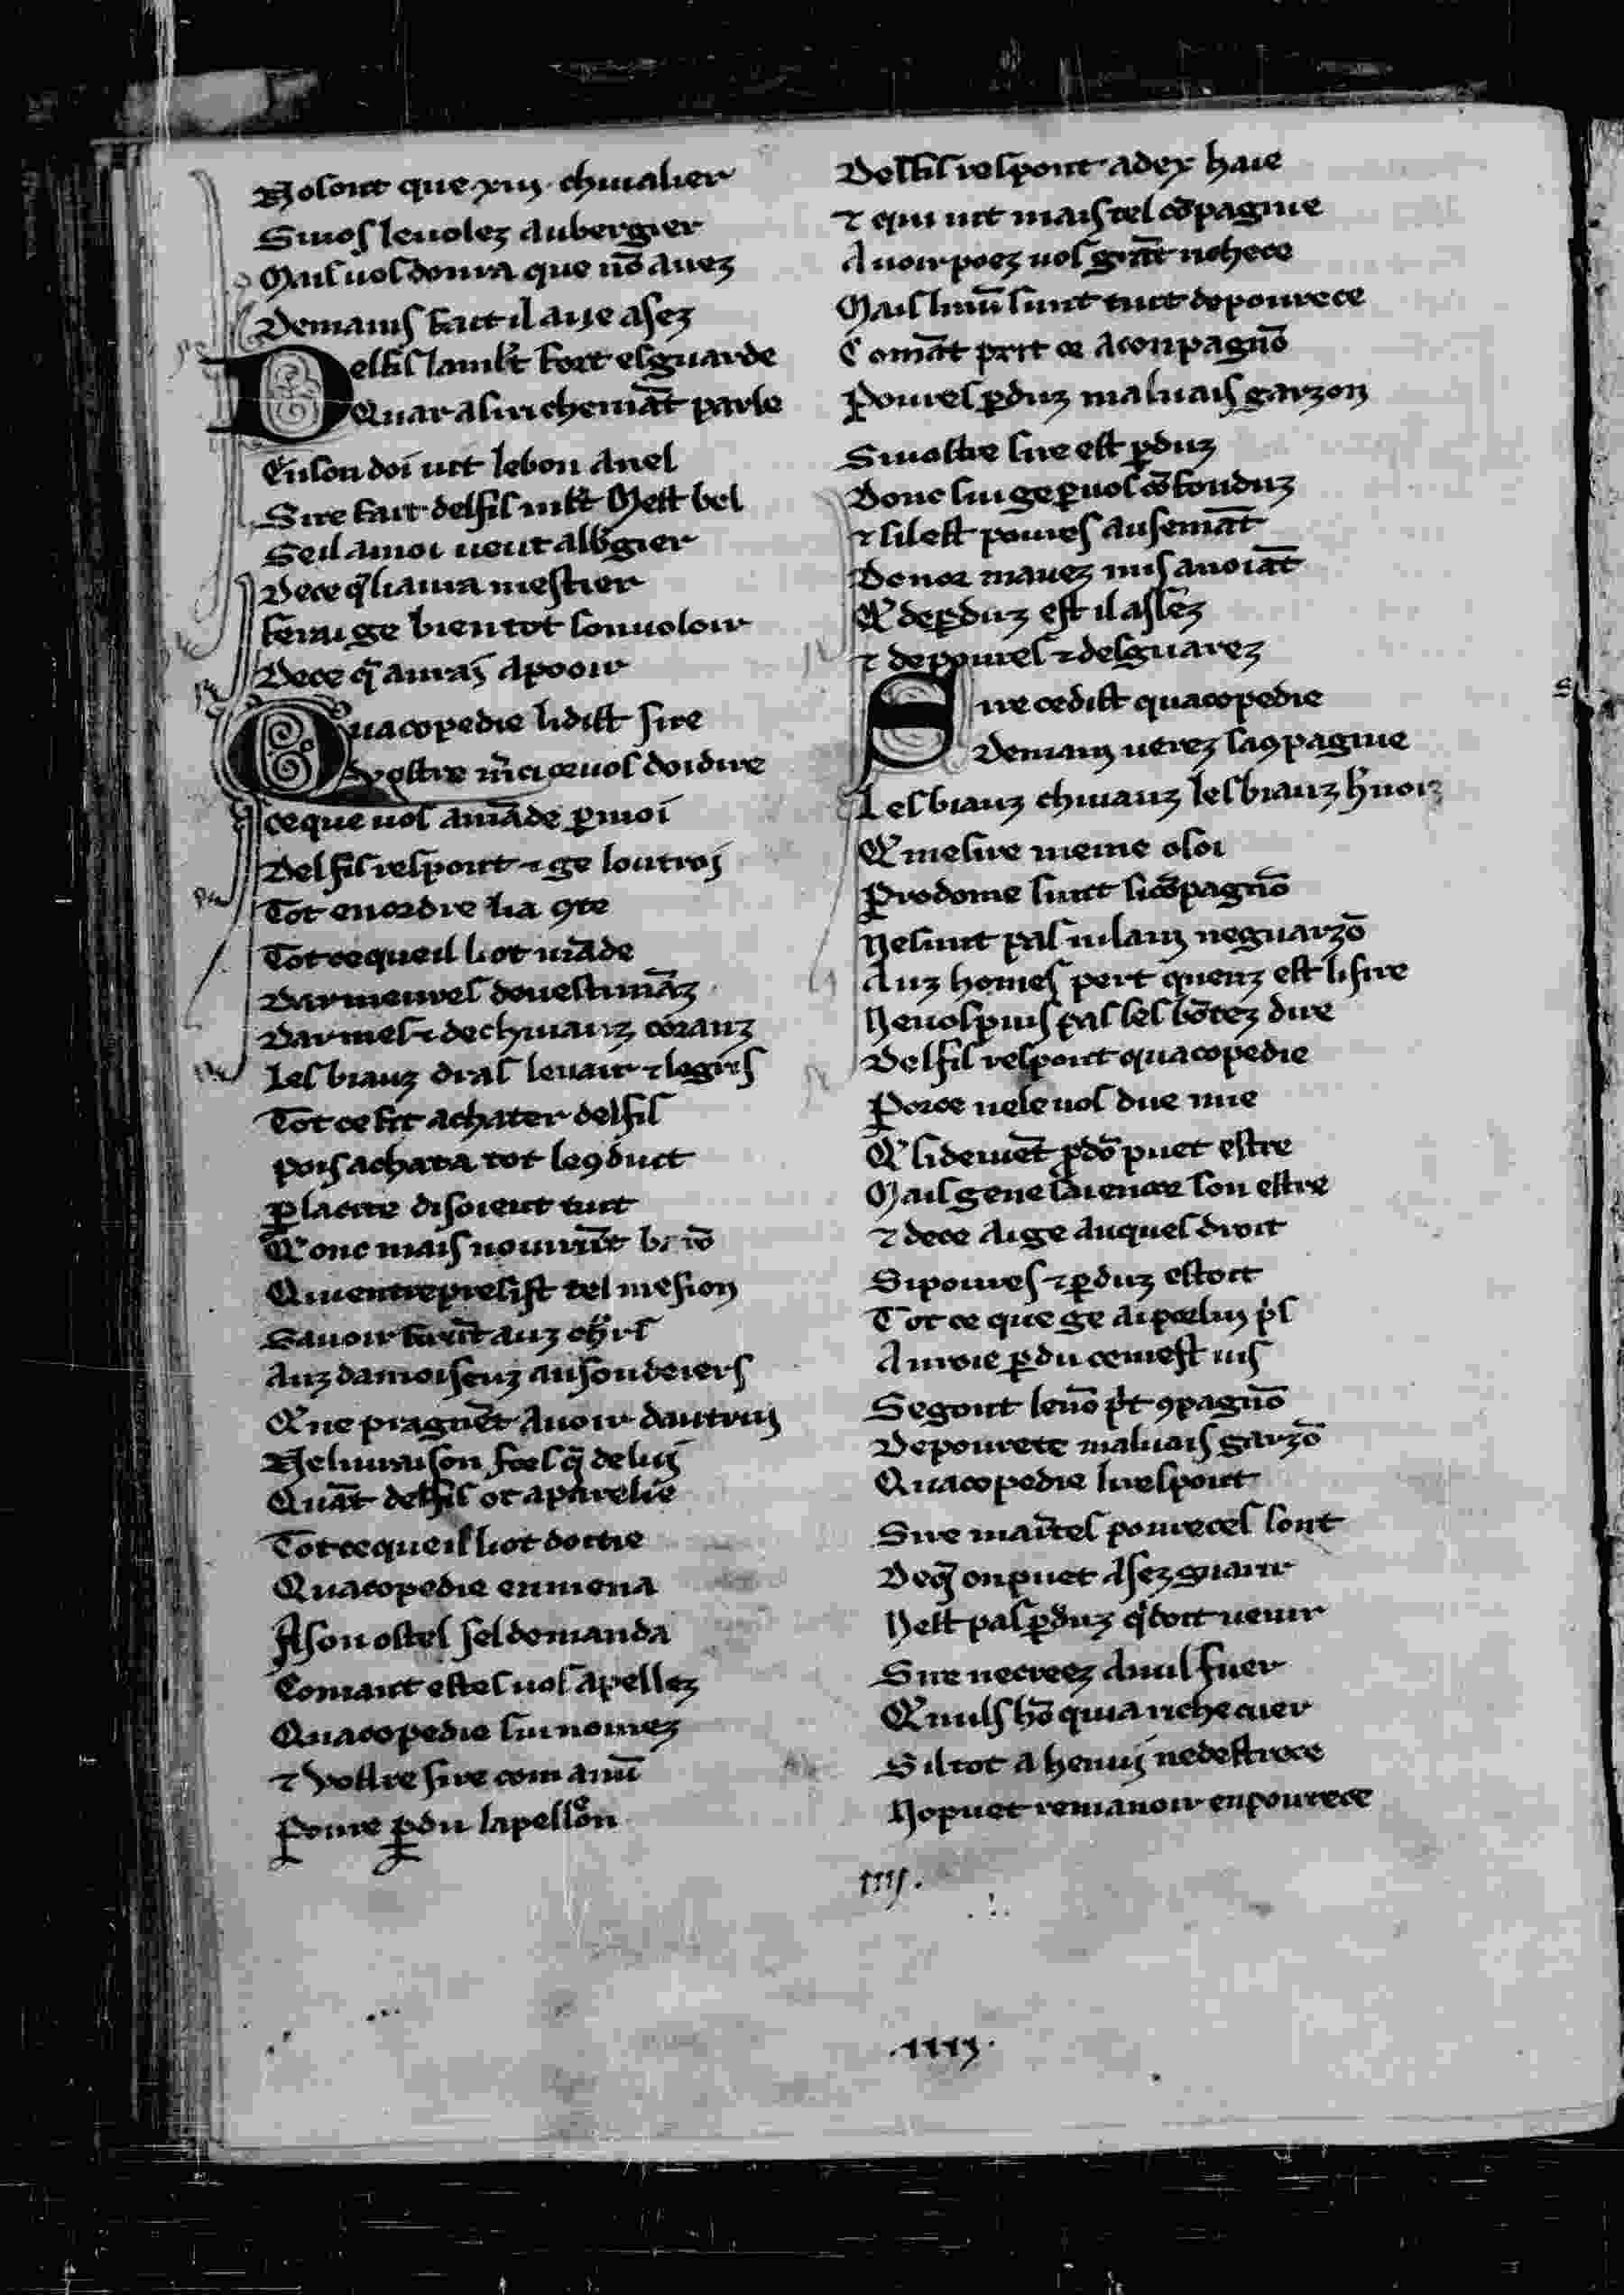 No sont que xiiij. chiualier
Si uos les uolez aubergier
Mais uos donra que nō auez
Demains fait il aije asez
Delfis lanūt fort esguarde
Quar asi richemāt parle
En son doi uit le bon anel
Sire fait delfis mlt Mest bel
Se il a moi ueut albgier
De ce qͥ li aura mestier
ferai ge bien tot son uoloir
De ce qͥ aurai apooir
Quacopedie li dist sire
Vostre m̄ci ce uos doi dire
ce que uos amāde ꝑ moi
Delfis respont ⁊ ge lontroi
Tot en ordre li a ꝯte
Tot ce que il li ot māde
Darmeures de uestimāz
Darmes ⁊ de chiuauz coranz
Les biauz dras le uair ⁊ le gris
Tot ce fit achater delfis
pois achata tot le ꝯduit
ꝑ la cite disoient tuit
Qͥ onc mais no uirūt b
Qui entrepresist tel mesion
Sauoir firūt auz ch̄rs
Auz damoiseuz au sondeiers
Qͥ ne pragnēt auoir dautrui
Ne liuraison fors qͥ de lui
Quāt delfis ot aparelie
Tot ce que il li ot dottie
Quacopedie en mena
A son ostel sel domanda
Comant estes uos apellez
Quacopedie sui nomez
⁊ Vostre sire com a nū
Poure ꝑdu lapellon
Delfis respont adex haie
⁊ qui uit mais tel cōpagnie
Auoir poez uos grāt richece
Mais li nū sunt tuit de pourece
Comāt prit ce a conpagnō
Poures ꝑduz maluais garzon
Si uostre sire est ꝑduz
Donc sui ge ꝑ uos cōfonduz
⁊ sil est poures ausemāt
Donc mauez mis a noiāt
Qͥ de ꝑduz est il assez
⁊ de poures ⁊ desguarez
Sire ce dist quacopedie
Demain uerez sa ꝯpagnie
Les biauz chiuauz les biauz h̄nois
Qͥ me sire meine o soi
Prodome sunt si cōpagnō
Ne sunt pas uilain ne guarzō
Auz homes pert quenz est li sire
Ne uos puis pas ses bōtez dire
Delfis respont quacopedie
Por ce nele uos die mie
Qͥ si deuiēt ꝓdō puet estre
Mais ge ne sai encore son estre
⁊ de ce ai ge auques droit
Si poures ⁊ ꝑduz estoit
Tot ce que ge ai por lui pͥs
Auroie ꝑdu ce mest uis
Segont le nō pͥt ꝯpagnō
De pourete maluais garzō
Quacopedie li respont
Sire maītes poureces sont
De qͥ on puet asez guarir
Nest pas ꝑduz qͥ doit uenir
Sire ne creez a nul fuer
Qͥ nuls hō qui a riche cuer
Sil tot a hennui ne destrece
No puet remanoir en pourece
iiij.
.iiij.